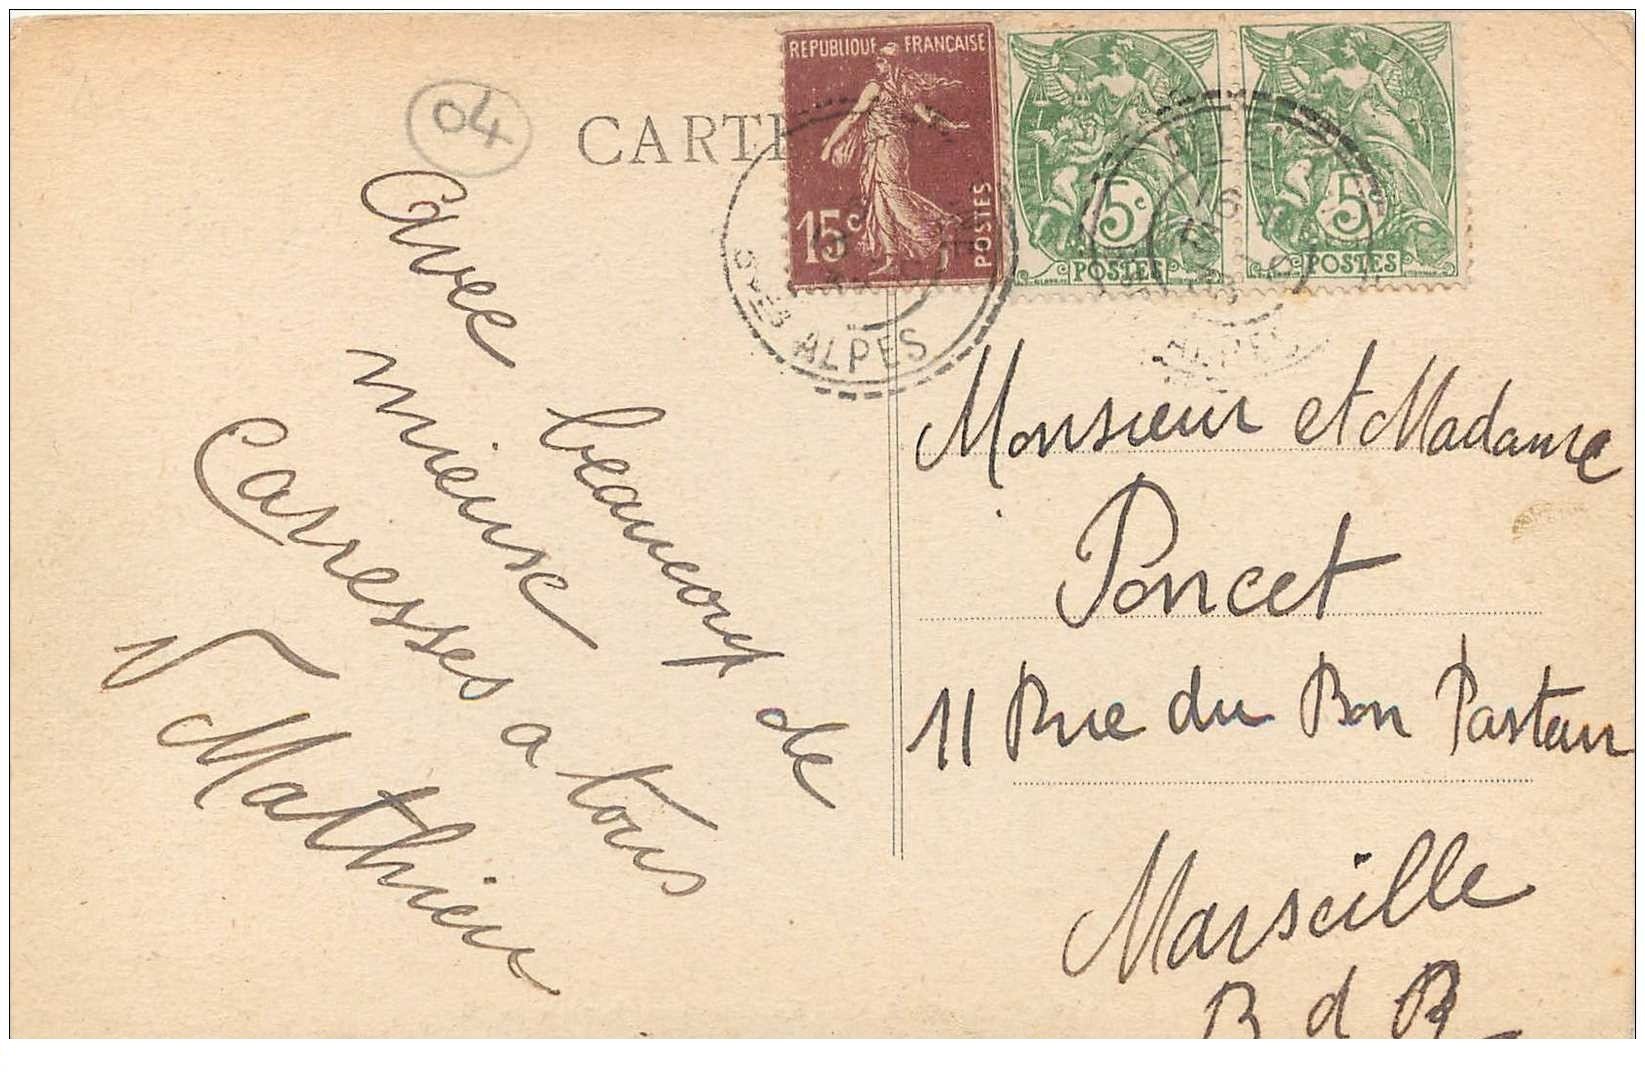 04
CARTE
REPUBLIQUE FRANÇAISE
15c
POSTES
5c
POSTES
5c
POSTES
BSES ALPES
ALPES
Avec beaucoup de
mieuse
Carresses a tous
V Mathieu
Monsieur et Madame
Poncet
11 Rue du Bon Pasteur
Marseille
B d R